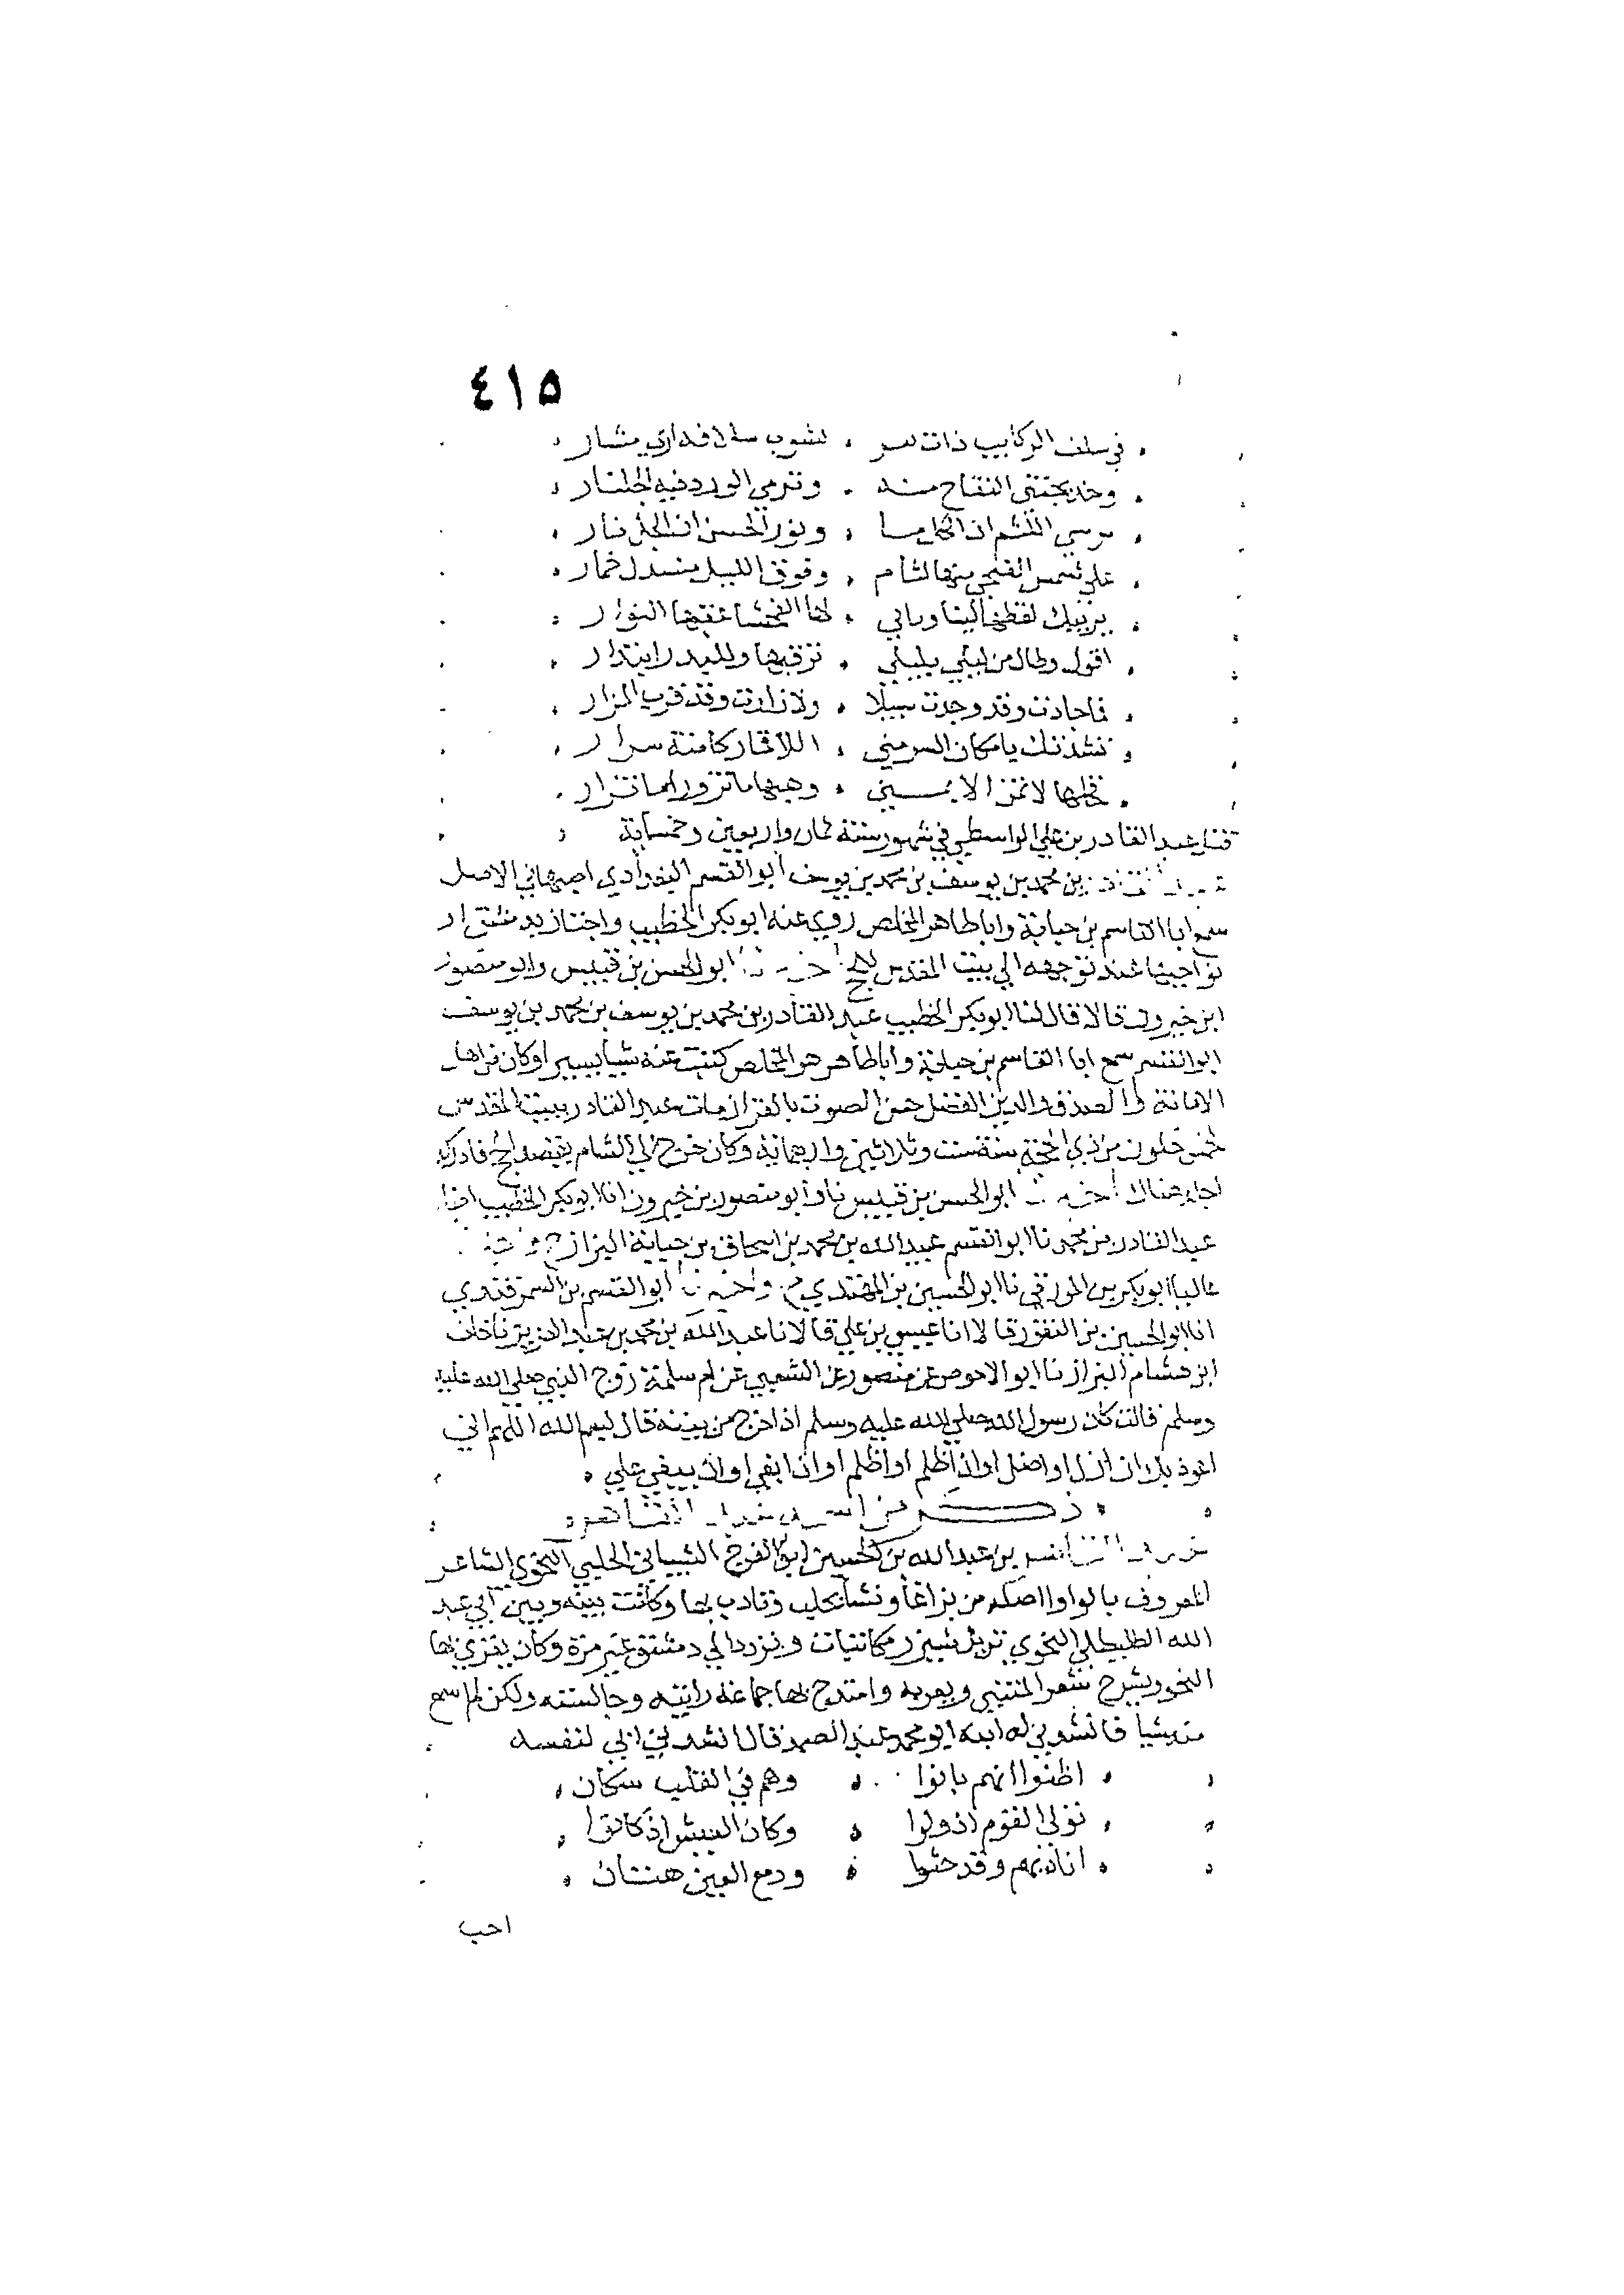 ٤١٥
في سلف الركايب ذات ، لشوب سلافه اري مشار
وخد يجتنى التفاح منه ، ونرمي الورد فيه الجلنار
اللثم ان ، ونور الحسن ان الجل نار
علي شمس الضحي منها لثام ، وفوق الليل منسدل خمار
يرييك لفظها لينا وراي ، لها الفحشا عفتها النوار
اقول وطال من ليلي بليلي ، ترقبها وللبدر ابتدار
فما جادت وقد وجدت سبيلا ، ولا زارت وقد قرب المزار
نشدتك يا مكان السر مني ، اللاقمار كامنة سرار
فخلها لا تمن الا بمسيني ، وهبها ما تزور اما تزار
عبد القادر بن علي الواسطي في شهور سنة ثمان واربعين وخمسماية
بن محمد بن يوسف بن محمد بن يوسف ابو القسم البغدادي اصبهاني الاصل
سمع ابا القاسم بن حبابة وابا طاهر المخلص روي عنه ابو بكر الخطيب واجتاز بدمشق او
نواحيها عند توجهه الي بيت المقدس للحج ابو الحسن بن قبيس وابو منصور
ابن خيرون قالا قال لنا ابو بكر الخطيب عبد القادر بن محمد بن يوسف بن محمد بن يوسف
ابو القسم سمع ابا القاسم بن حبابة وابا طاهر هو المخلص كتبت عنه شيا يسيرا وكان من اهل
الامانة والصدق والدين الفضل حسن الصوت بالقران مات عبد القادر ببيت المقدس
لخمس خلون من ذي الحجة سنة ست وثلاثين واربعماية وكان خرج الي الشام يقصد الحج فادركه
اجله هناك ابو الحسن بن قبيس نا وابو منصور بن خيرون انا ابو بكر الخطيب
عبد القادر بن محمد نا ابو القسم عبيد الله بن محمد بن اسحاق بن حبابة البزاز ح
عاليا ابو بكر بن المزرقي نا ابو الحسين بن المهتدي ح ابو القسم بن السمرقندي
انا ابو الحسين بن النقور قالا انا عيسي بن علي قالا نا عبد الله بن محمد بن عبد العزيز نا خلف
ابن هشام البزاز نا ابو الاحوص عن منصور عن الشعبي عن ام سلمة زوج النبي صلي الله عليه
وسلم قالت كان رسول الله صلي الله عليه وسلم اذا خرج من بيته قال بسم الله اللهم اني
اعوذ بك ان ازل او اضل او ان اظلم او اظلم او ان ابغي او ان يبغي علي
ذكر من اسمه عبد القاهر
عبد القاهر بن عبد الله بن الحسين ابو الفرج الشيباني الحلبي النحوي الشاعر
المعروف بالواوا اصله من بزاغا ونشا بحلب وتادب بها وكانت بينه وبين ابي عبد
الله الطليطلي النحوي نزيل شيزر مكاتبات وتردد الي دمشق غير مرة وكان يقري بها
النحو ويشرح شعر المتنبي ويعربه وامتدح بها جماعة رايته وجالسته ولكن لم اسمع
منه شيا فانشدني له ابنه ابو محمد عبد الصمد قال انشدني ابي لنفسه
اظنوا انهم بانوا ، وهم في القلب سكان
تولي القوم اذ ولوا ، وكان العيش اذ كانوا
اناديهم وقد حثوا ، ودمع العين هتان
احب